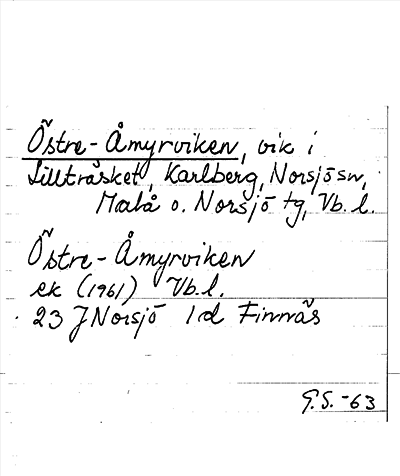 Östre-Åmyrviken, vik i
Lillträsket, Karlberg, Norsjö sn,
Malå o. Norsjö tg, Vb. l.
Östre-Åmyrviken
ek (1961) Vb. l.
23 J Norsjö 1d Finnäs
G.S. -63